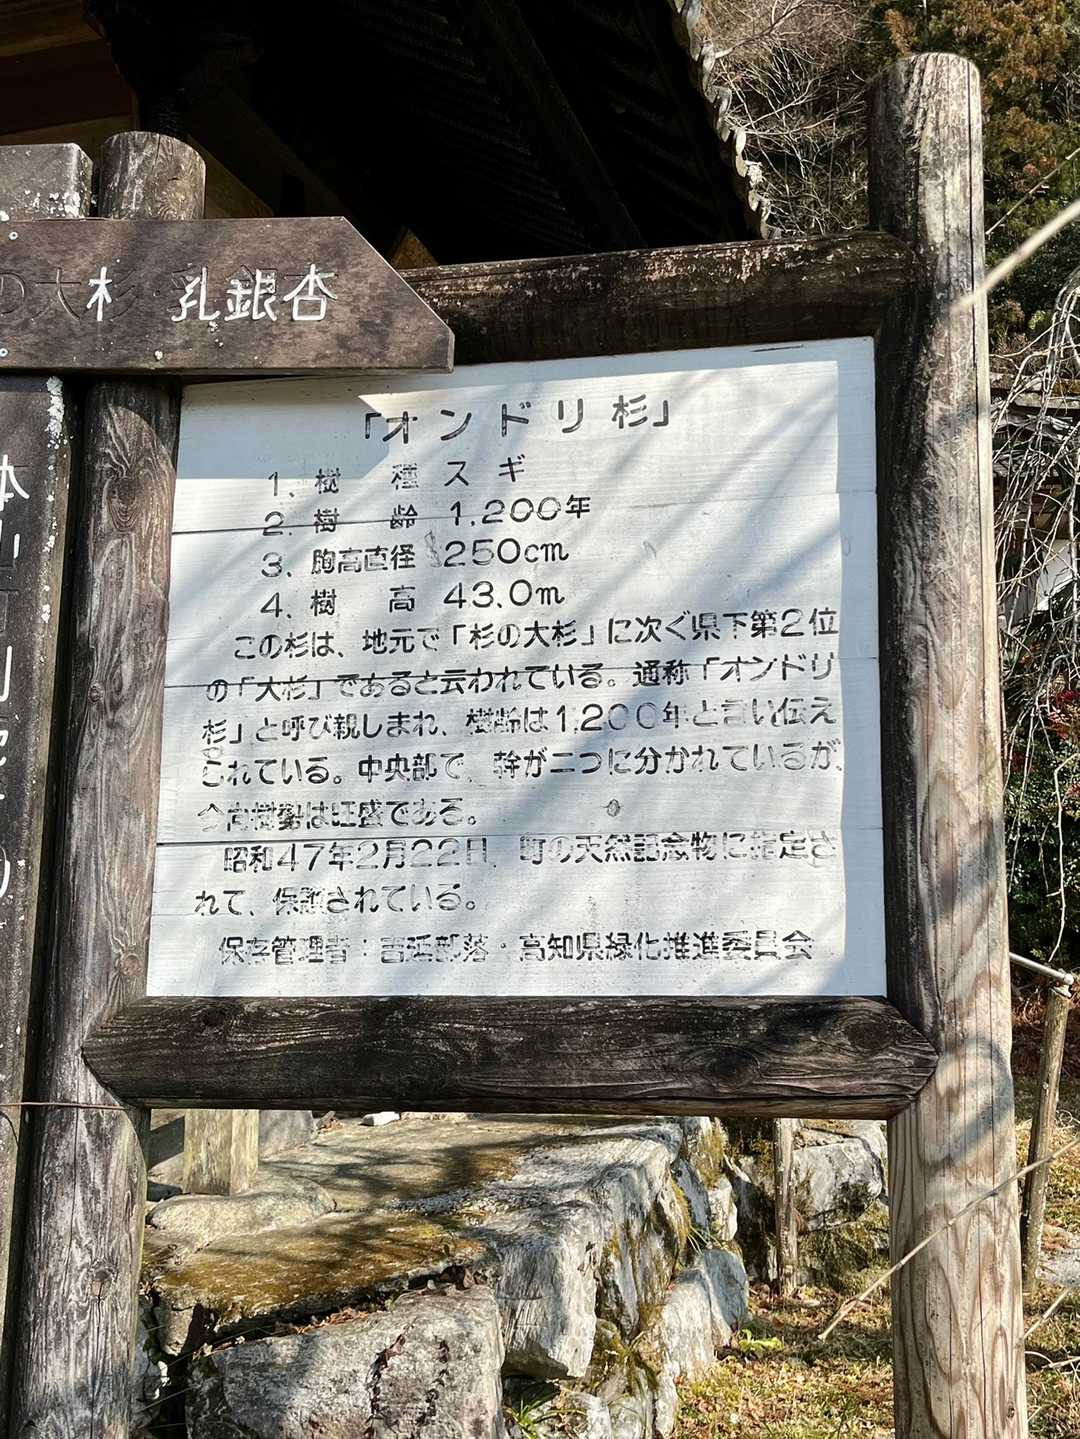 の大杉・乳銀杏
「オンドリ杉」
1、樹 種 スギ
2、樹 齢 1,200年
3、胸高直径 250cm
4、樹 高 43.0m
この杉は、地元で「杉の大杉」に次ぐ県下第2位
の「大杉」であると云われている。通称「オンドリ
杉」と呼び親しまれ、樹齢は1,200年と言い伝え
られている。中央部で、幹が二つに分かれているが、
今尚樹勢は旺盛である。
昭和47年2月22日、町の天然記念物に指定さ
れて、保護されている。
保存管理者：吉延部落・高知県緑化推進委員会
本山町